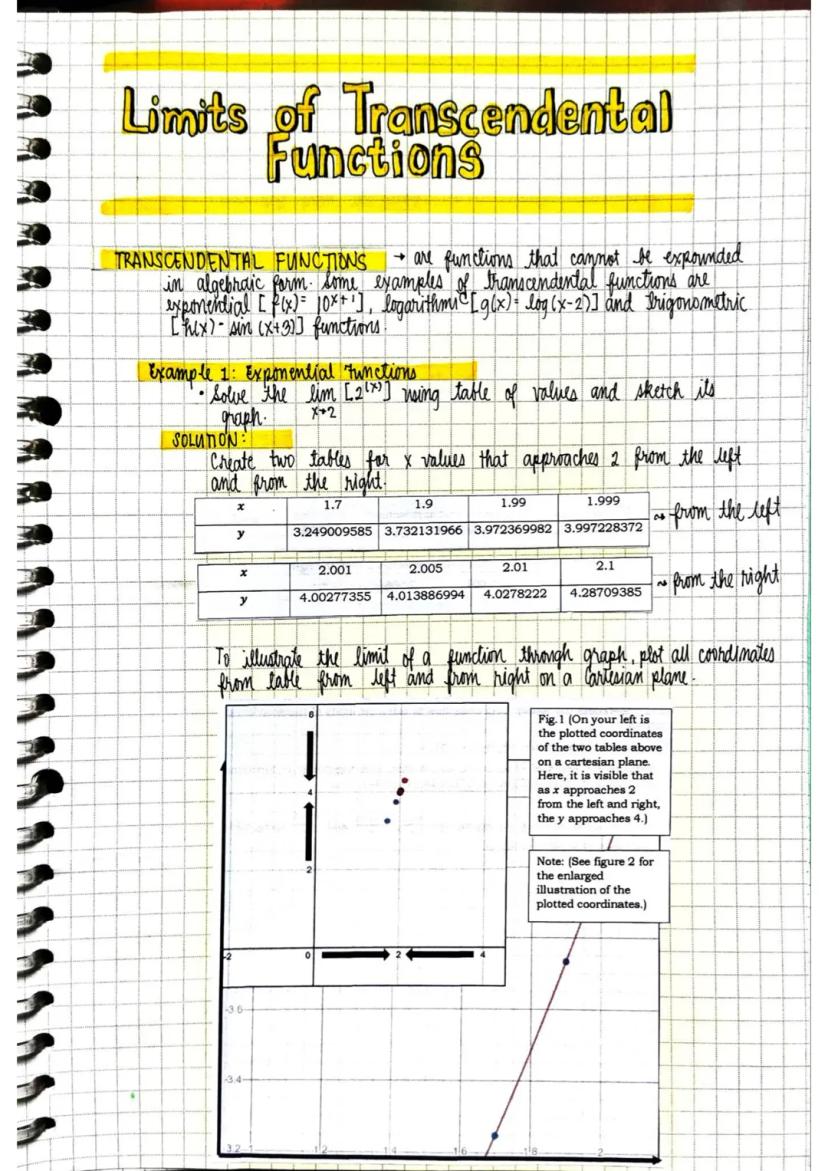 Limits of Transcendental
Functions
TRANSCENDENTAL FUNCTIONS → are functions that cannot be expounded
in algebraic form. Some examples of transcendental functions are
exponential [f(x)= 10^x+1], logarithmic [g(x)= log(x-2)] and trigonometric
[h(x)= sin (x+3)] functions.
Example 1: Exponential Functions
• Solve the lim [2^(x)] using table of values and sketch its
x→2
graph.
SOLUTION:
Create two tables for x values that approaches 2 from the left
and from the right.
x 1.7 1.9 1.99 1.999
y 3.249009585 3.732131966 3.972369982 3.997228372
from the left
x 2.001 2.005 2.01 2.1
y 4.00277355 4.013886994 4.0278222 4.28709385
from the right
To illustrate the limit of a function through graph, plot all coordinates
from table from left and from right on a Cartesian plane.
6
4
2
-2 0 2 4
Fig.1 (On your left is
the plotted coordinates
of the two tables above
on a cartesian plane.
Here, it is visible that
as x approaches 2
from the left and right,
the y approaches 4.)
Note: (See figure 2 for
the enlarged
illustration of the
plotted coordinates.)
-3.6
-3.4
3.2 1 1.2 1.4 1.6 1.8 2